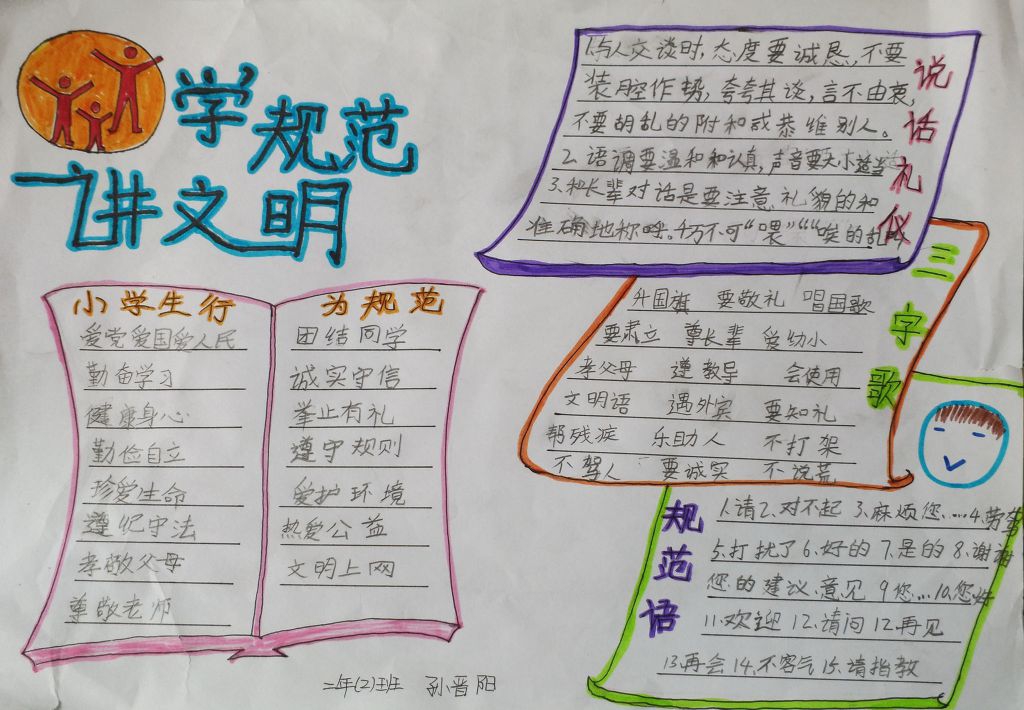 学规范
讲文明
小学生行
爱党爱国爱人民
勤奋学习
健康身心
勤俭自立
珍爱生命
遵纪守法
孝敬父母
尊敬老师
为规范
团结同学
诚实守信
举止有礼
遵守规则
爱护环境
热爱公益
文明上网
二年(2)班 孙晋阳
说话礼仪
1.与人交谈时,态度要诚恳,不要
装腔作势,夸夸其谈,言不由衷,
不要胡乱的附和或恭维别人。
2.语调要温和和认真,声音要大小适当
3.和长辈对话是要注意礼貌的和
准确地称呼。4万不可“喂”“唉的乱叫
三字歌
升国旗 要敬礼 唱国歌
要肃立 尊长辈 爱幼小
孝父母 遵教导 会使用
文明语 遇外宾 要知礼
帮残疾 乐助人 不打架
不骂人 要诚实 不说荒
规范语
1.请2.对不起 3.麻烦您……4.劳驾
5.打扰了6.好的7.是的8.谢谢
您的建议、意见 9您…10.您好
11.欢迎 12.请问 12.再见
13.再会14.不客气15.请指教